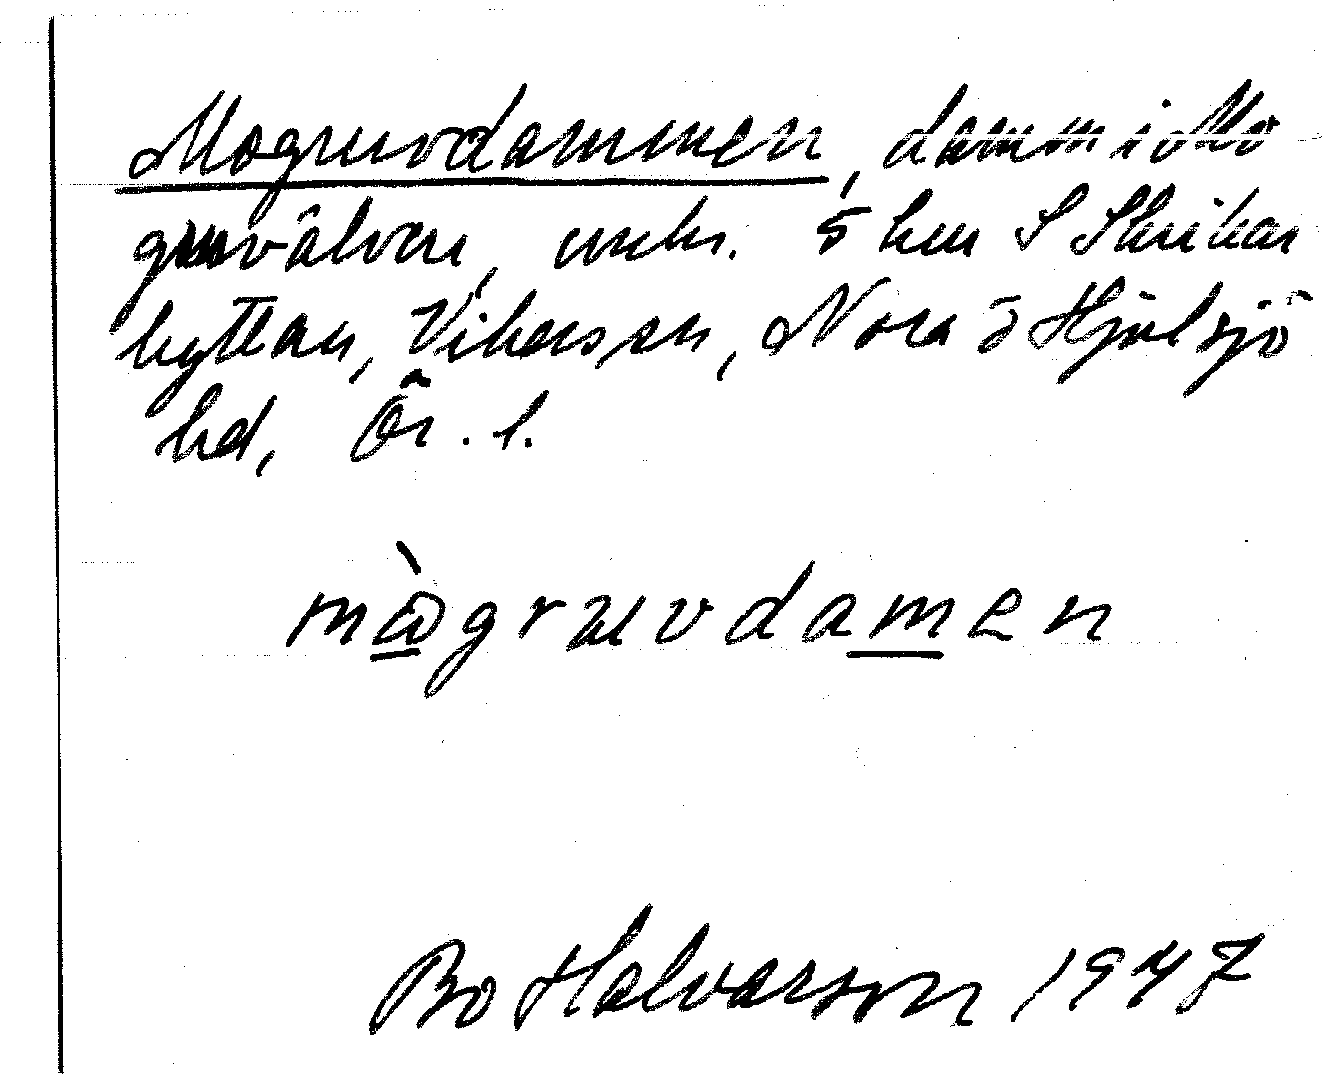 Mogruvdammen, damm i Mo
gruvälven, unke. 5 km S Skrikar
hyttan, Vikers sn, Nora o Hjulsjö
bd, Ör. l.
mωgruvdamen
Bo Halvarson 1947